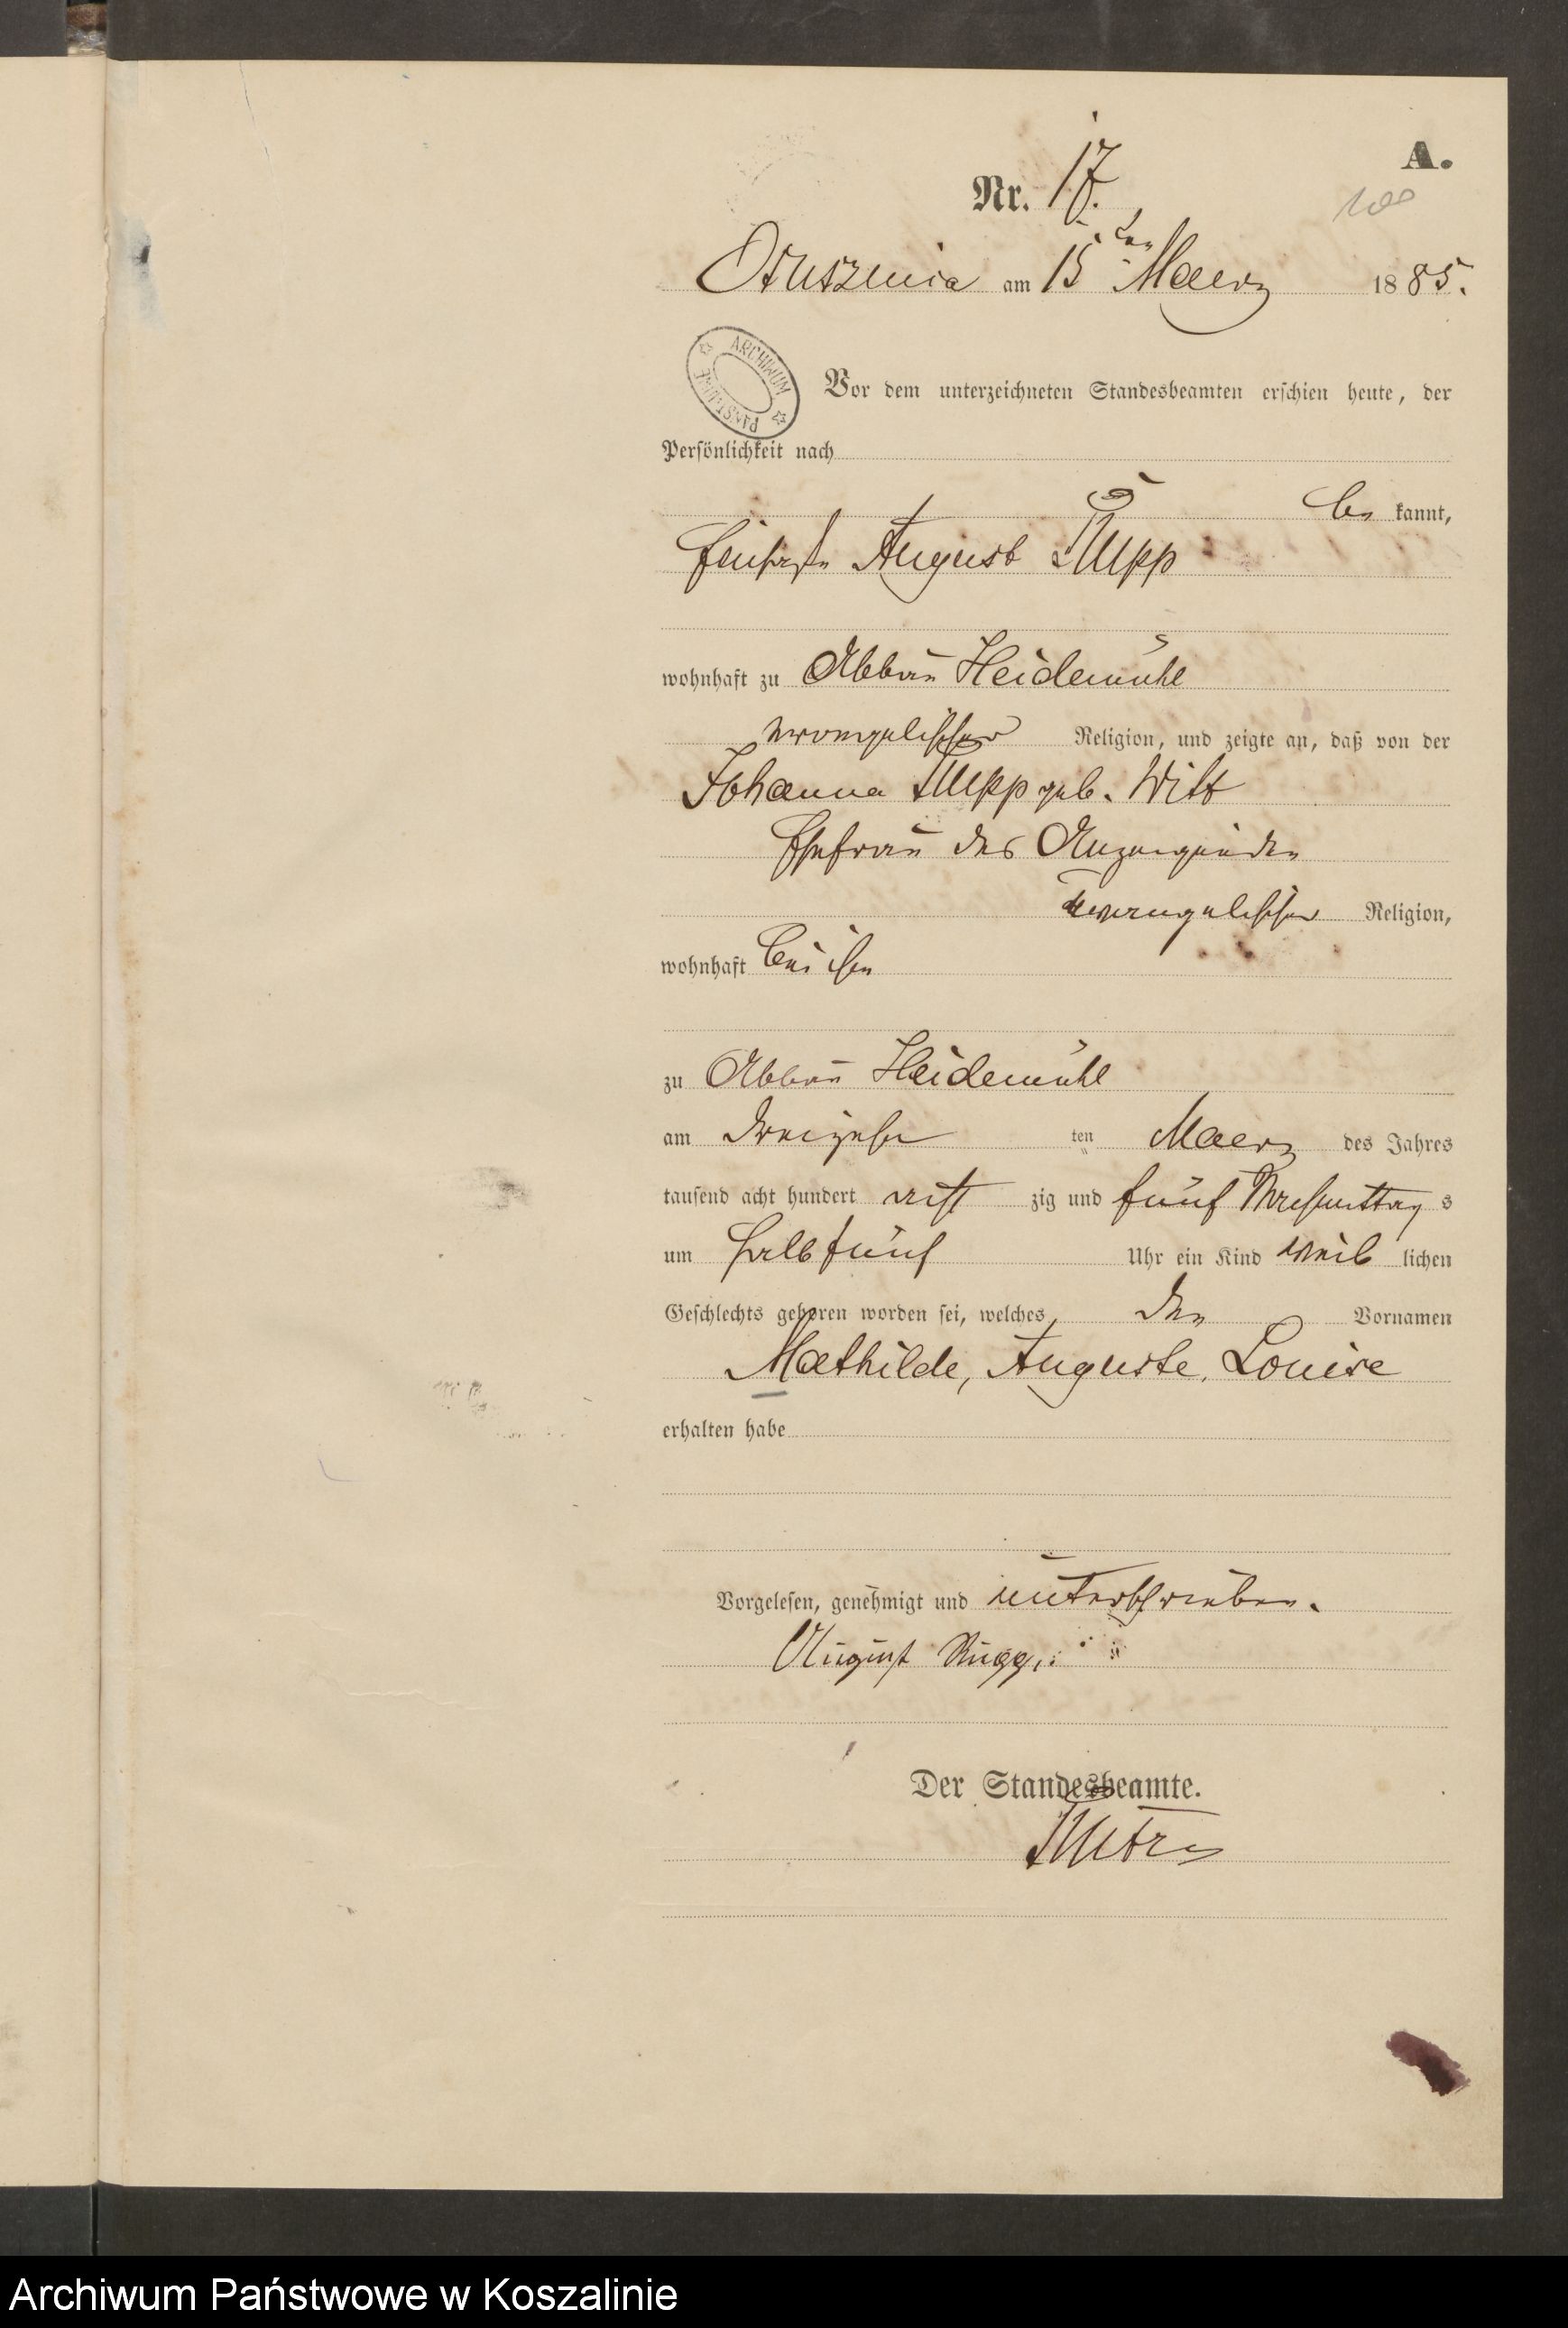 A.
Nr. 17.
100
am 15ten Maerz 1885.
ARCHIWUM
Vor dem unterzeichneten Standesbeamten erschien heute, der
Persönlichkeit nach
be kannt,
August Rupp
wohnhaft zu Abbau Heidemühl
evangelischer Religion, und zeigte an, daß von der
Johanna Rupp geb. Witt
Ehefrau des Anzeigenden
evangelischer Religion,
wohnhaft bei ihm
zu Abbau Heidemühl
am dreizehn ten Maerz des Jahres
tausend acht hundert acht zig und fünf Nachmittag s
um halb fünf Uhr ein Kind weib lichen
Geschlechts geboren worden sei, welches den Vornamen
Mathilde, Auguste, Louise
erhalten habe
Vorgelesen, genehmigt und unterschrieben.
August Rupp
Der Standesbeamte.
Archiwum Państwowe w Koszalinie